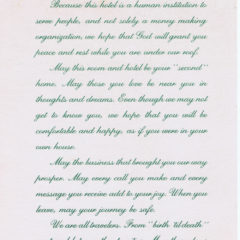 Because this hotel is a human institution to
serve people, and not solely a money making
organization, we hope that God will grant you
peace and rest while you are under our roof.
May this room and hotel be your "second"
home. May those you love be near you in
thoughts and dreams. Even though we may not
get to know you, we hope that you will be
comfortable and happy, as if you were in your
own house.
May the business that brought you our way
prosper. May every call you make and every
message you receive add to your joy. When you
leave, may your journey be safe.
We are all travelers. From "birth 'til death"